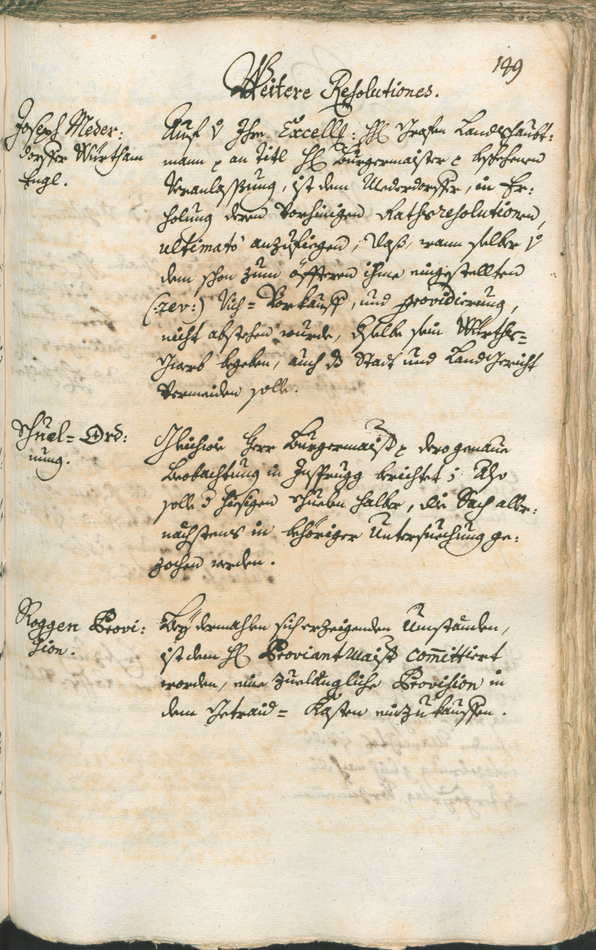 149
Weitere Resolutiones.
Joseph Meder:
dorffer Würth am
Engl.
Auf v Ihro Excell: H: Grafen Landtshaubt:
mann p an Titl H: Burgermaister p beschehene
Veranlassung, ist dem Mederdorffer, in Er:
holung deren vorhinigen Rathsresolutionen,
ultimato anzufiegen, daß, wann selber v
dem schon zum öffteren ihme eingestellten
(:rev:) Vich-Vorkauff, und providierung,
nicht abstehen wurde, Er selbe sein Würths-
Gwerb begeben, auch dß Statt und Landgericht
vermeiden solle.
Schuel-Ord:
nung.
Gleichwie Herr Burgermaist p dero genaue
Beobachtung in Insprugg berichtet; Also
solle d hiesigen Schuelen halber, die Sach aller:
nächstens in behöriger Untersuechung ge:
zochen werden.
Roggen Provi:
sion.
Bey dermahlen sich erzeigenden Umständen,
ist dem H: Proviantmaist committiert
worden, eine zuelängliche Provision in
dem Getraid-Kasten einzukauffen.